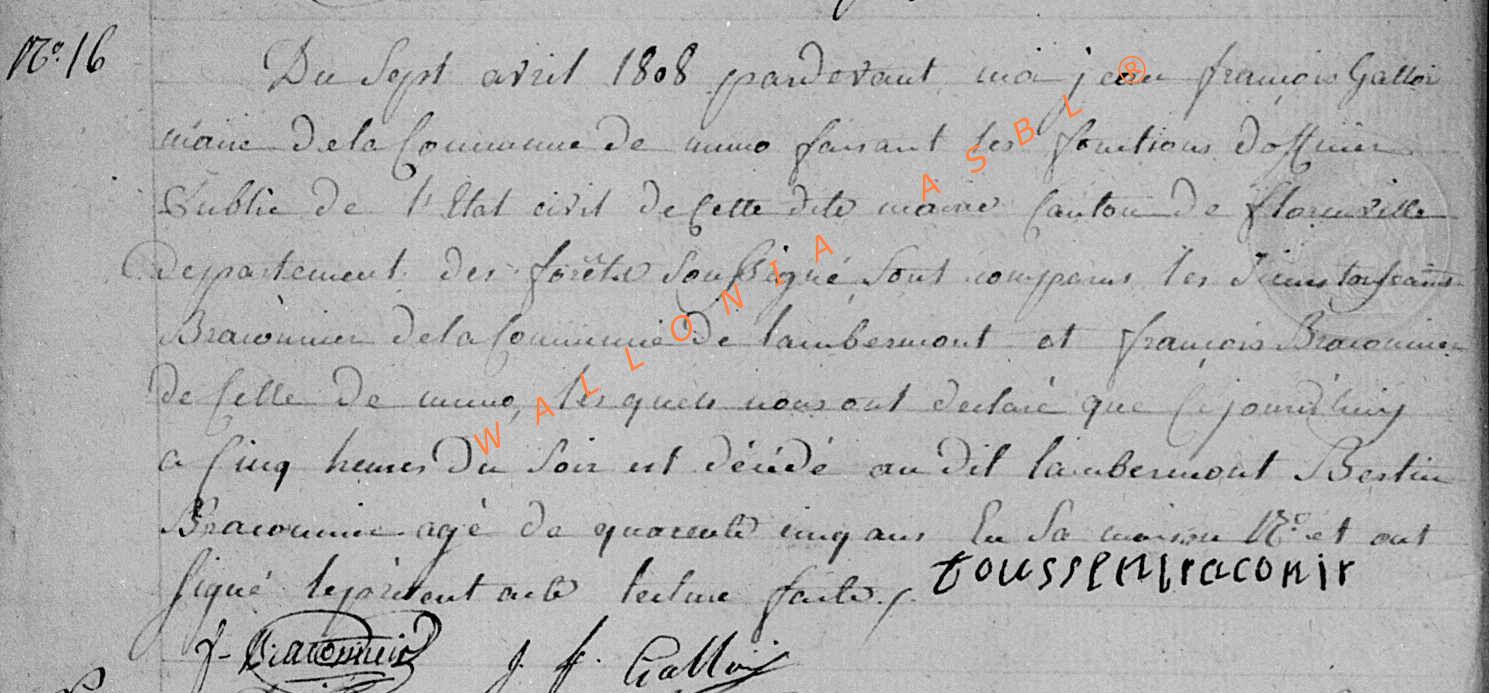 N.º 16
Du Sept avril 1808 pardevant moi jean françois Gallois
maire de la Commune de muno faisant les fonctions d'officier
Public de l'Etat civil de Cette dite mairie Canton de florenville
département des forêts Soussigné, Sont comparus les Sieurs toussaint
Braconnier de la Commune de lambermont et françois Braconnier
de Celle de muno, les quels nous ont declaré que Cejourd'huy
a Cinq heures Du Soir est décédé au dit lambermont Bertin
Braconnier agé de quarente cinq ans En Sa maison N.º et ont
Signé leprésent acte lecture faite ./.
toussen braconir
f. Braconnier
J. f. Gallois
WALLONIA ASBL ®